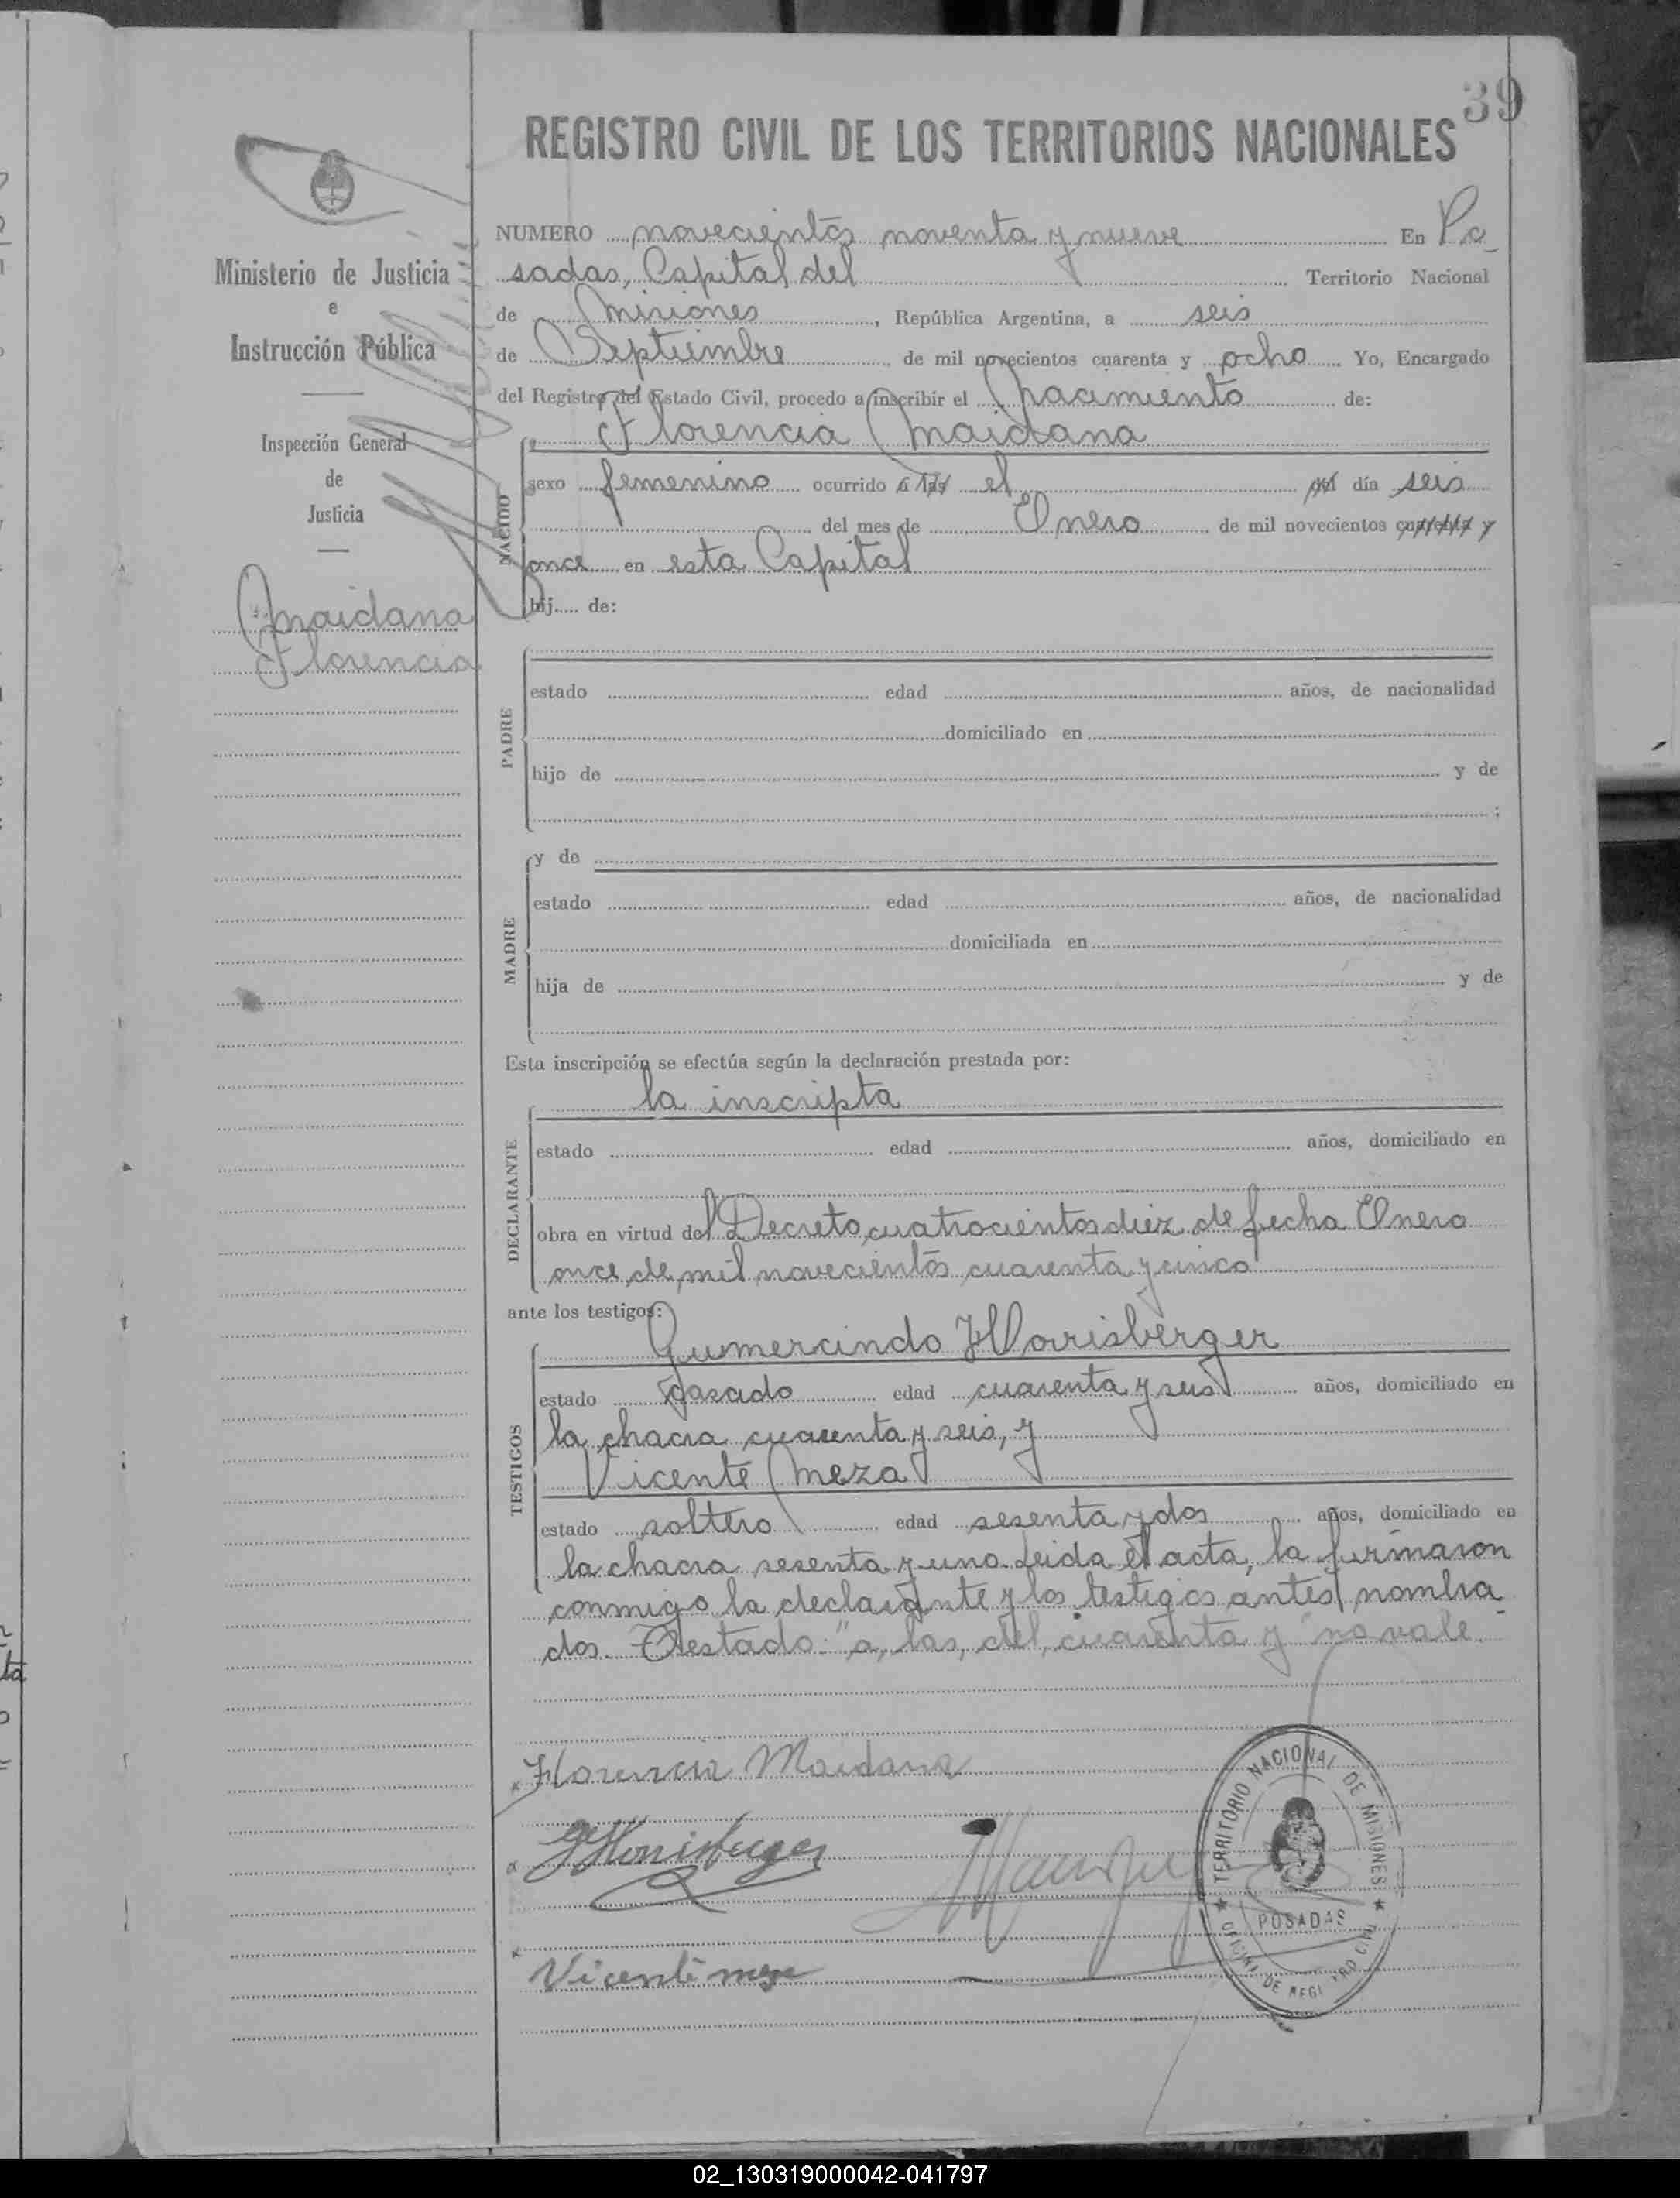 39
REGISTRO CIVIL DE LOS TERRITORIOS NACIONALES
Ministerio de Justicia
e
Instrucción Pública
Inspección General
de
Justicia
Maidana
Florencia
NUMERO novecientos noventa y nueve En Po
sadas, Capital del Territorio Nacional
de Misiones, República Argentina, a seis
de Septiembre de mil novecientos cuarenta y ocho Yo, Encargado
del Registro del Estado Civil, procedo a inscribir el Nacimiento de:
Florencia Maidana
NACIDO
sexo femenino ocurrido a las el del día seis
del mes de Enero de mil novecientos cuarenta y
once en esta Capital
hij de:
PADRE
estado edad años, de nacionalidad
domiciliado en
hijo de y de
;
MADRE
y de
estado edad años, de nacionalidad
domiciliada en
hija de y de
Esta inscripción se efectúa según la declaración prestada por:
DECLARANTE
la inscripta
estado edad años, domiciliado en
obra en virtud del Decreto cuatrocientos diez de fecha Enero
once de mil novecientos cuarenta y cinco
ante los testigos:
TESTIGOS
Gumercindo Horrisberger
estado casado edad cuarenta y seis años, domiciliado en
la chacra cuarenta y seis, y
Vicente Meza
estado soltero edad sesenta y dos años, domiciliado en
la chacra sesenta y uno. Leida el acta, la firmaron
conmigo la declarante y los testigos antes nombra
dos. Testado: "a, las, del, cuarenta y" no vale.
Florencia Maidana
Vicente meza
TERRITORIO NACIONAL DE MISIONES
POSADAS
OFICINA DE REGISTRO CIVIL
02_130319000042-041797